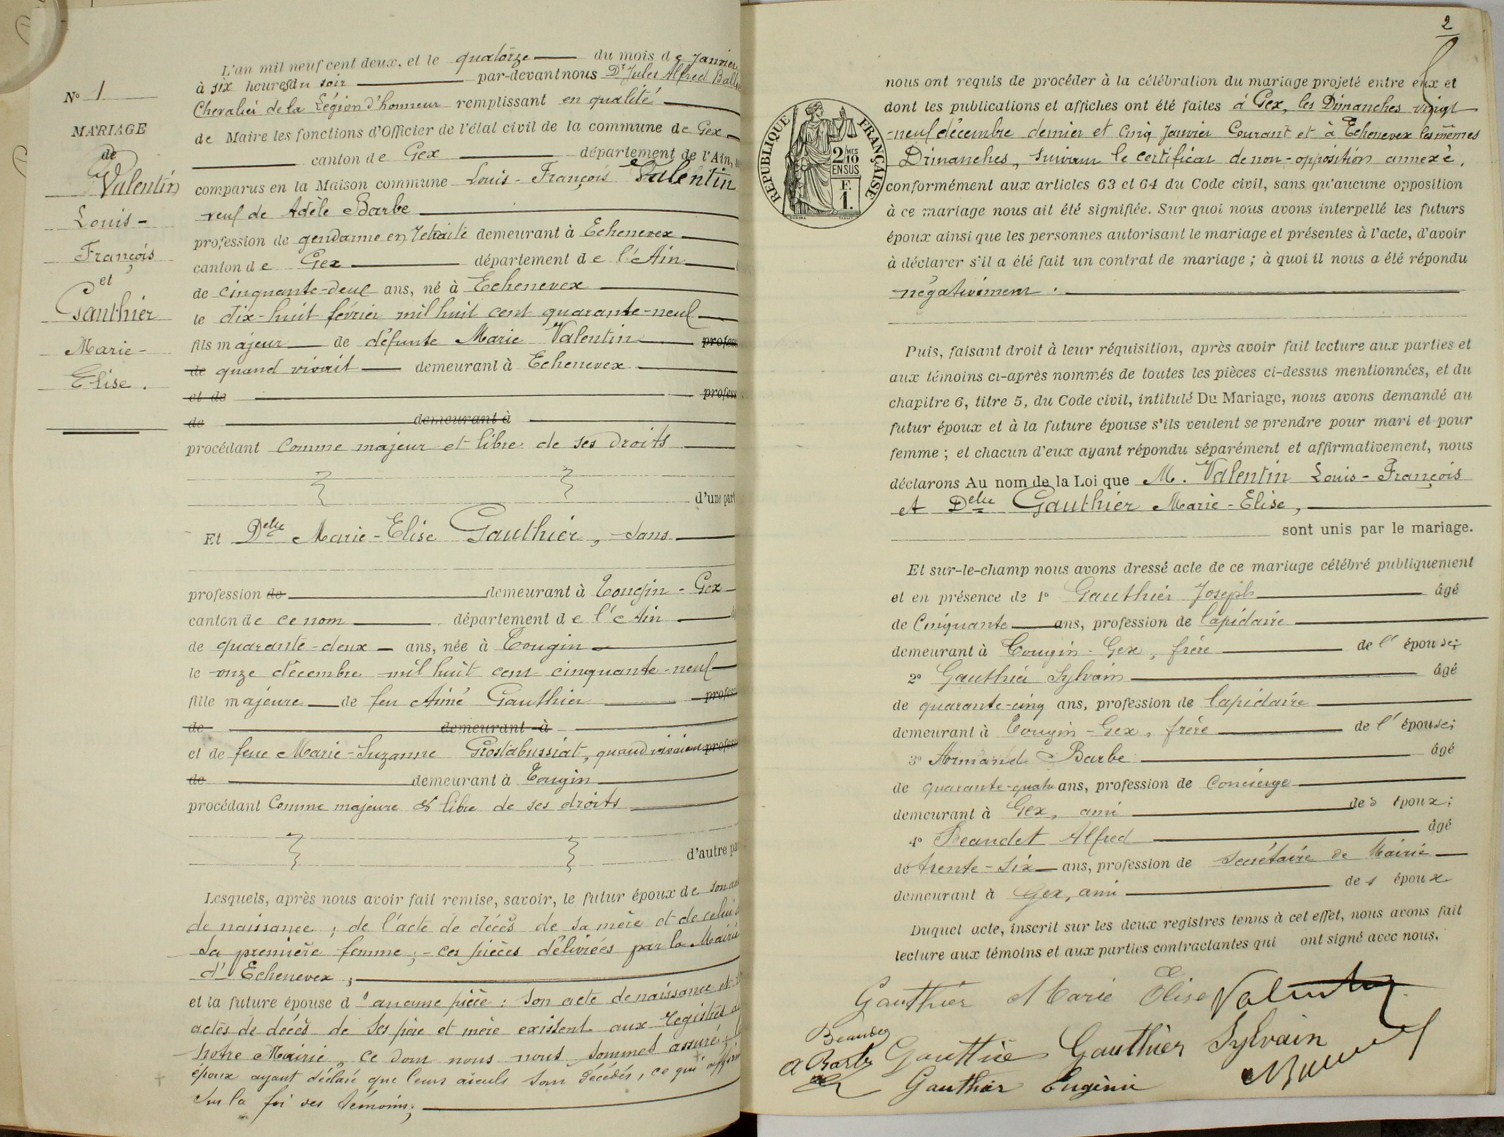 N° 1
MARIAGE
de
Valentin
Louis-
François
et
Gauthier
Marie-
Elise.
L'an mil neuf cent deux, et le quatorze du mois de Janvier
à six heures du soir par-devant nous Dr Jules Alfred
Chevalier de la Légion d'honneur remplissant en qualité
de Maire les fonctions d'Officier de l'état civil de la commune de Gex
canton de Gex département de l'Ain,
comparus en la Maison commune Louis-François Valentin
veuf de Adèle Barbe
profession de gendarme en retraite demeurant à Echenevex
canton de Gex département de l'Ain
de cinquante-deux ans, né à Echenevex
le dix-huit février mil huit cent quarante-neuf
fils majeur de défunte Marie Valentin profess
de quand vivait demeurant à Echenevex
et de profess
de demeurant à
procédant comme majeur et libre de ses droits
d'une part
Et Delle Marie-Elise Gauthier, sans
profession de demeurant à Tougin-Gex
canton de ce nom département de l'Ain
de quarante-deux ans, née à Tougin
le onze décembre mil huit cent cinquante-neuf
fille majeure de feu Aimé Gauthier profess
de demeurant à
et de feue Marie-Suzanne quand vivaient profess
de demeurant à Tougin
procédant comme majeure & libre de ses droits
d'autre pa
Lesquels, après nous avoir fait remise, savoir, le futur époux de son
de naissance; de l'acte de décès de sa mère et de celui
sa première femme; - ces pièces délivrées par la Mairie
d'Echenevex;
et la future épouse d'aucune pièce: son acte de naissance et
actes de décès de ses père et mère existent aux registres
notre Mairie, ce dont nous nous sommes assuré;
époux ayant déclaré que leurs aïeuls sont décédés, ce qui
sur la foi des témoins;
2
RÉPUBLIQUE FRANÇAISE
2/10
EN SUS
1 F.
nous ont requis de procéder à la célébration du mariage projeté entre eux et
dont les publications et affiches ont été faites à Gex, les Dimanches vingt
-neuf décembre dernier et cinq Janvier courant et à Echenevex les mêmes
Dimanches, suivant le certificat de non-opposition annexé,
conformément aux articles 63 et 64 du Code civil, sans qu'aucune opposition
à ce mariage nous ait été signifiée. Sur quoi nous avons interpellé les futurs
époux ainsi que les personnes autorisant le mariage et présentes à l'acte, d'avoir
à déclarer s'il a été fait un contrat de mariage; à quoi il nous a été répondu
négativement.
Puis, faisant droit à leur réquisition, après avoir fait lecture aux parties et
aux témoins ci-après nommés de toutes les pièces ci-dessus mentionnées, et du
chapitre 6, titre 5, du Code civil, intitulé Du Mariage, nous avons demandé au
futur époux et à la future épouse s'ils veulent se prendre pour mari et pour
femme; et chacun d'eux ayant répondu séparément et affirmativement, nous
déclarons Au nom de la Loi que M. Valentin Louis-François
et Delle Gauthier Marie-Elise,
sont unis par le mariage.
Et sur-le-champ nous avons dressé acte de ce mariage célébré publiquement
et en présence de 1° Gauthier Joseph âgé
de cinquante ans, profession de lapidaire
demeurant à Tougin-Gex, frère de l'épouse;
2° Gauthier Sylvain âgé
de quarante-cinq ans, profession de lapidaire
demeurant à Tougin-Gex, frère de l'épouse;
3° Armand Barbe âgé
de quarante-quatre ans, profession de concierge
demeurant à Gex, ami des époux;
4° Beaudet Alfred âgé
de trente-six ans, profession de secrétaire de Mairie
demeurant à Gex, ami des époux
Duquel acte, inscrit sur les deux registres tenus à cet effet, nous avons fait
lecture aux témoins et aux parties contractantes qui ont signé avec nous.
Gauthier Marie Elise Valentin
Beaudet
A Barbe Gauthier Gauthier Sylvain
Gauthier Eugénie